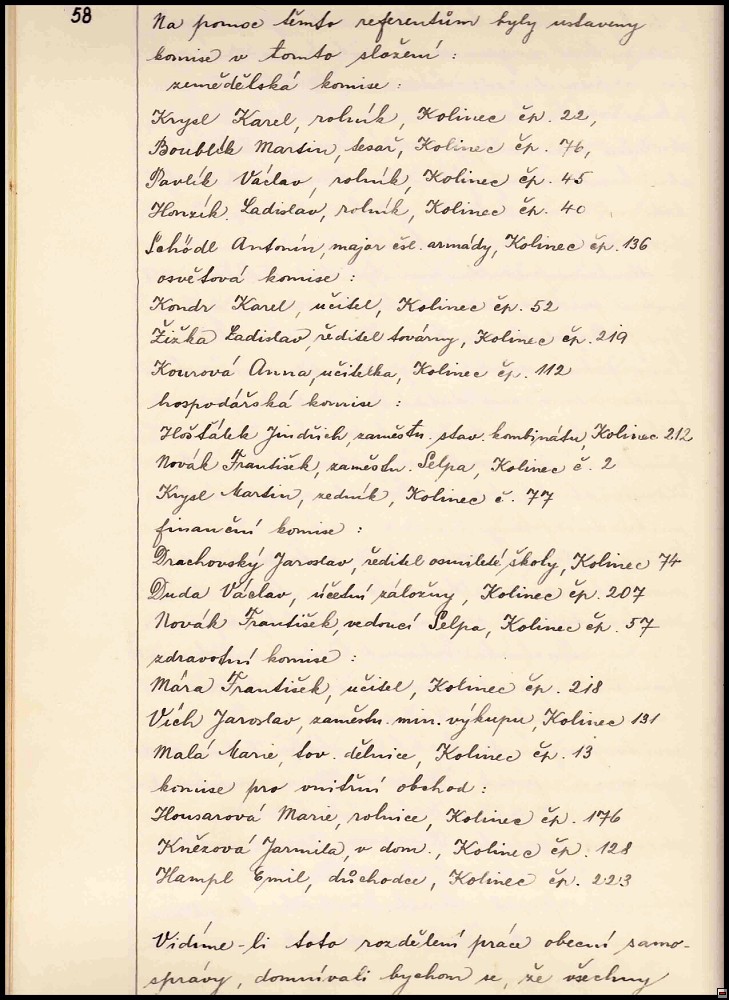 58
Na pomoc těmto referentům byly ustaveny
komise v tomto složení :
zemědělská komise :
Krysl Karel, rolník, Kolinec čp. 22,
Boublík Martin, tesař, Kolinec čp. 76,
Pavlík Václav, rolník, Kolinec čp. 45
Honzík Ladislav, rolník, Kolinec čp. 40
Schödl Antonín, major čsl. armády, Kolinec čp. 136
osvětová komise :
Kondr Karel, učitel, Kolinec čp. 52
Žižka Ladislav, ředitel továrny, Kolinec čp. 219
Kourová Anna, učitelka, Kolinec čp. 112
hospodářská komise :
Hošťálek Jindřich, zaměstn. stav. kombinátu, Kolinec 212
Novák František, zaměstn. Selpa, Kolinec č. 2
Krysl Martin, zedník, Kolinec č. 77
finanční komise :
Drachovský Jaroslav, ředitel osmileté školy, Kolinec 74
Duda Václav, účetní záložny, Kolinec čp. 207
Novák František, vedoucí Selpa, Kolinec čp. 57
zdravotní komise :
Mára František, učitel, Kolinec čp. 218
Vích Jaroslav, zaměstn. min. výkupu, Kolinec 131
Malá Marie, tov. dělnice, Kolinec čp. 13
komise pro vnitřní obchod :
Housarová Marie, rolnice, Kolinec čp. 176
Kněžová Jarmila, v dom., Kolinec čp. 128
Hampl Emil, důchodce, Kolinec čp. 223
Vidíme-li toto rozdělení práce obecní samo-
správy, domnívali bychom se, že všechny